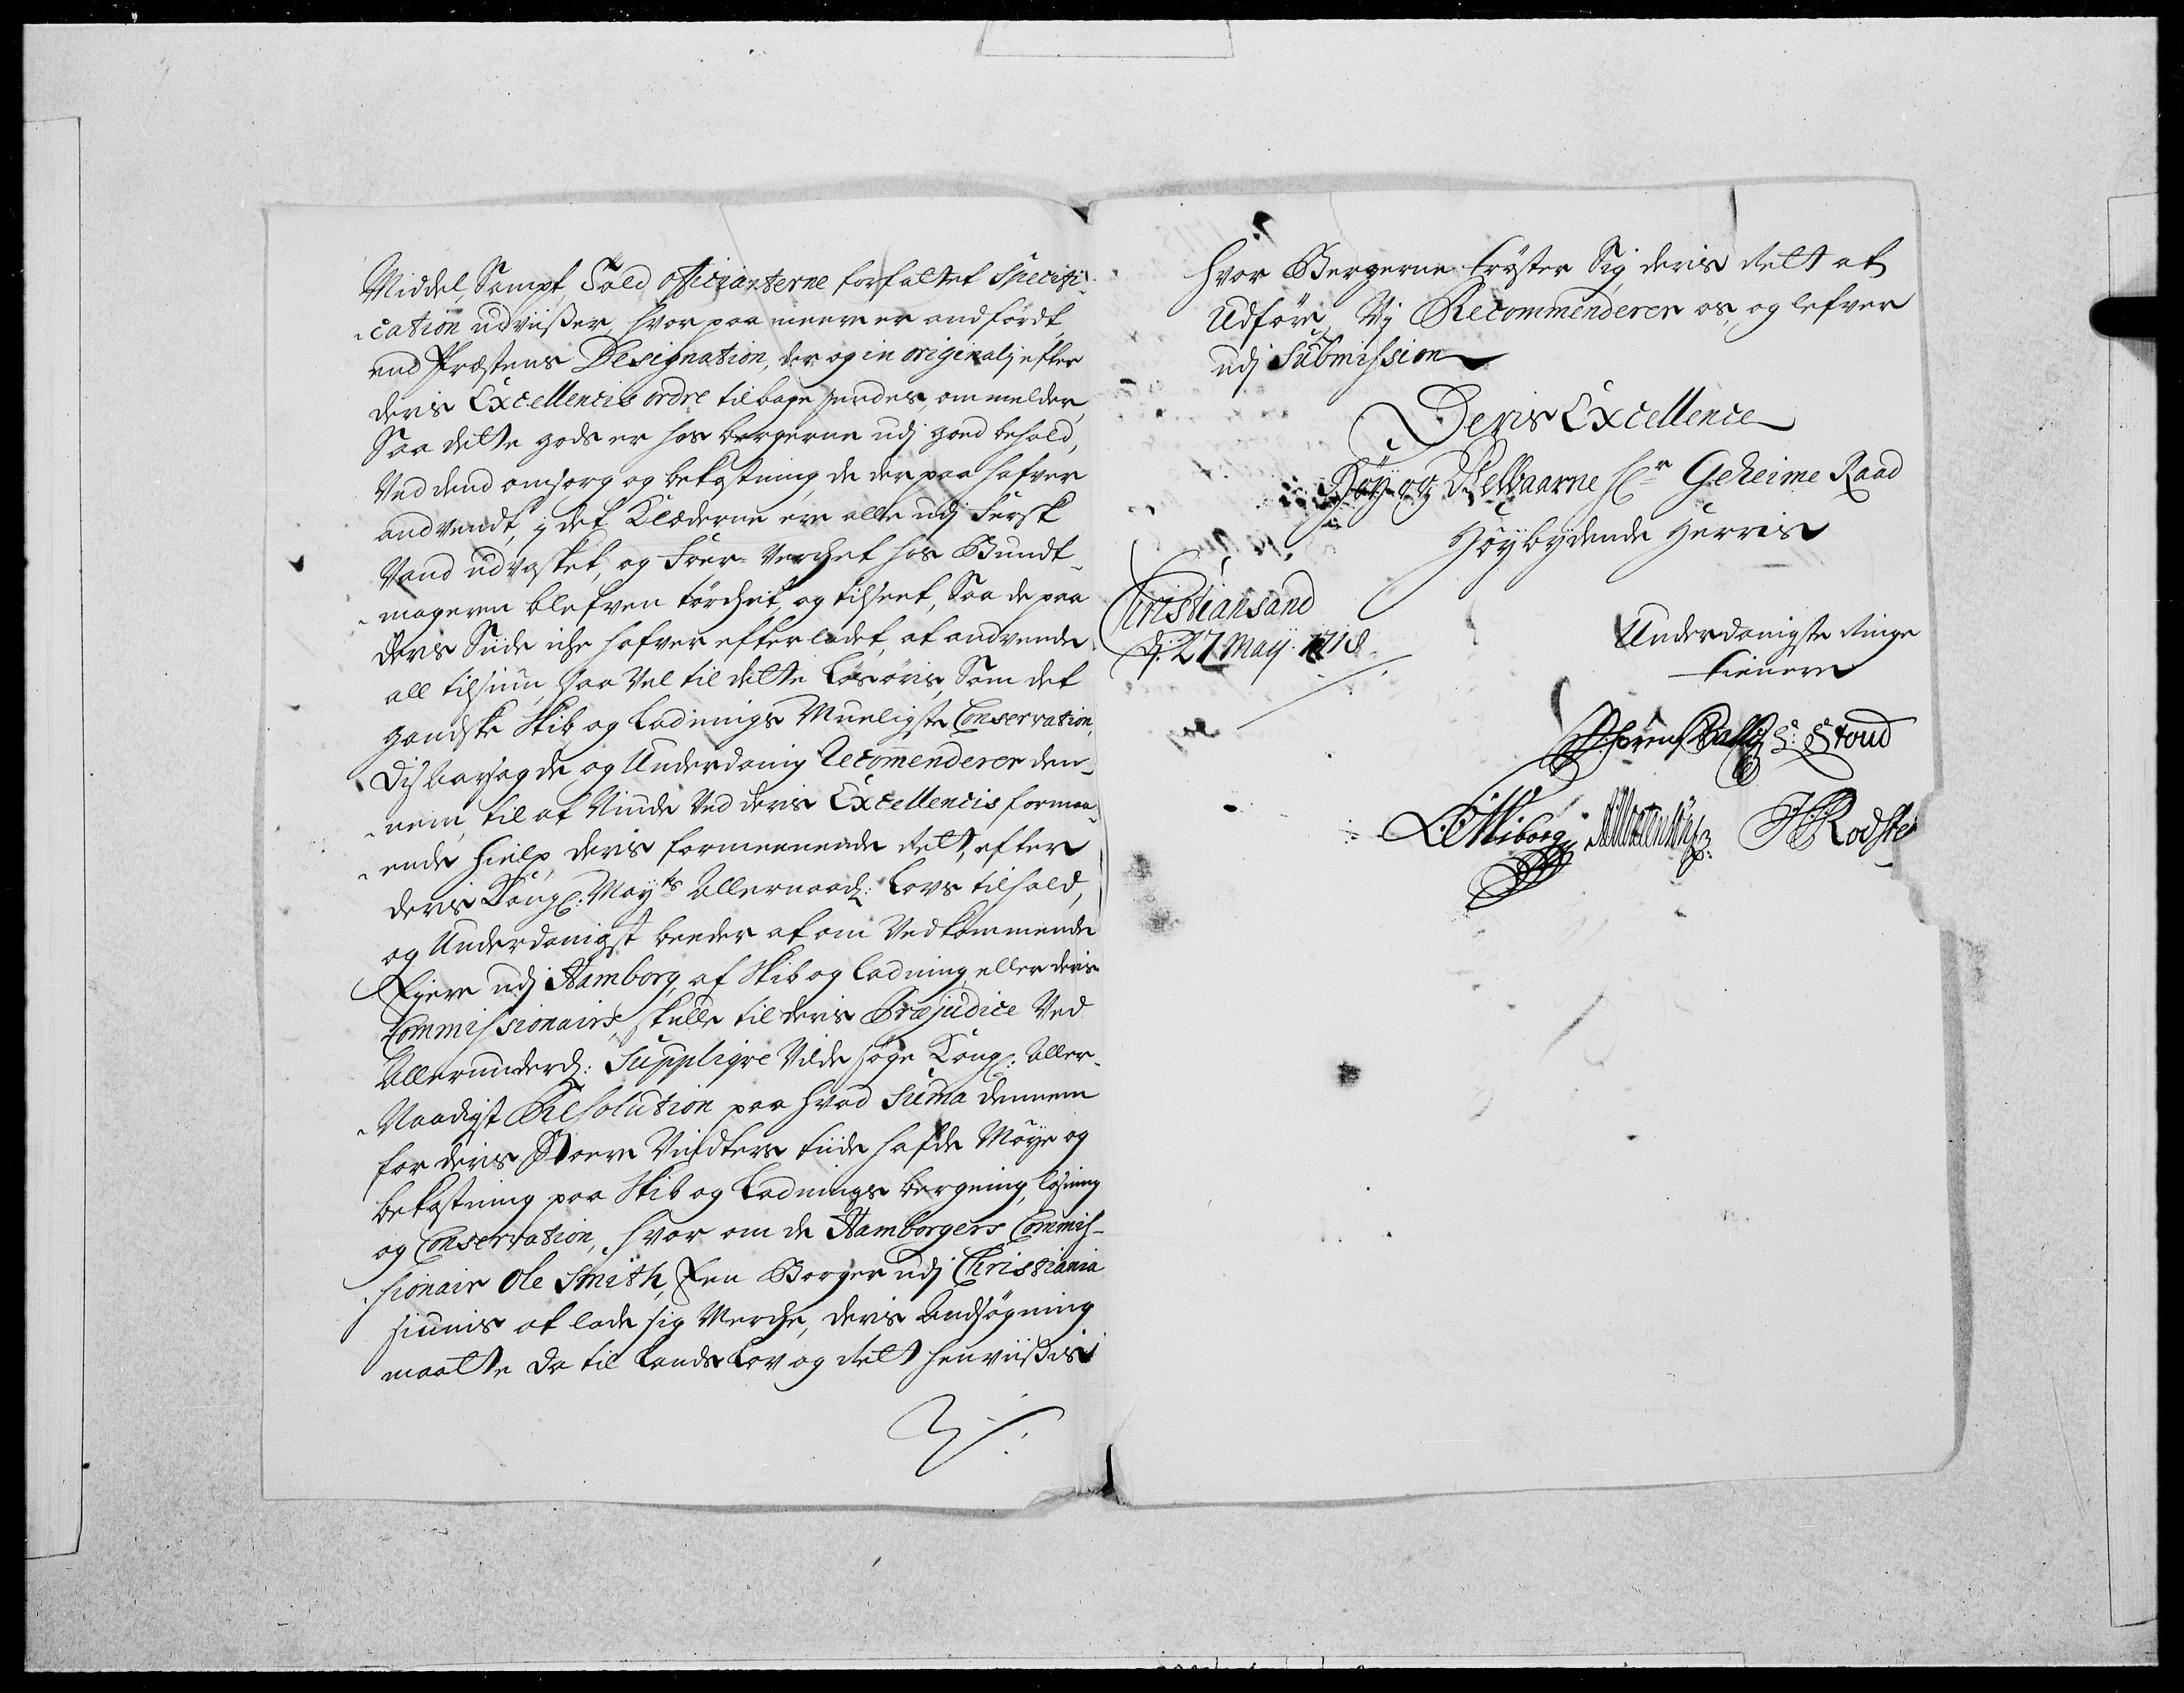 Middel, Sampt Told officianterne forfattet Specifi-
cation udviißer, hvor paa meere er andfördt,
end Præstens Designation, der og in originalj efter
deris Excellencis ordre tilbage sendes, ommelder,
Saa dette gods er hos bergerne udj goed behold,
Ved dend omsorg og bekostning de der paa hafver
andvendt, j det Klæderne ere alle udj fersk
Vand udvasket, og Foer-Verchet hos Bundt-
mageren blefven törchet, og tilseet, Saa de paa
deris Siide iche hafver efterladet, at andvende
all tilsiun, saa Vel til dette Lösöris, Som det
gandske Skib og Ladnings Mueligste Conservation,
og Underdanig Recommenderer den-
nem, til at Niude Ved deris Excellencis formaa-
ende hielp, deris formeenende Rett, efter
deris Kongl: Mayts Allernaad: Lovs tilhold,
og Underdanigst beeder at om Vedkommende
Ejere udj Hamborg, af Skib og ladning, eller deris
Commissionairs, skulle til deris Præjudice Ved
Allerunderd: Suppliqve Vilde söge Kongl: Aller-
Naadigst Resolution paa hvad Suma dennem
for deris Stoere Vindters tiide hafde Möye og
bekostning paa Skib og Ladnings bergning, losning
og Conservation, hvor om de Hamborgers Commis-
sionair Ole Smith, Een Borger udj Christiania
siunis at lade sig Merche, deris Andsögning
maatte da til Lands Lov og Rett henviißis
hvor Bergerne tröster Sig deris Rett at
Udföre, Vj Recommenderer os, og lefver
udj Submission
Deris Excellence
Höy og Velbaarne Hr Geheime Raad
Höybydende Herris
Christiansand
d: 27 Maij 1718
Underdanigste Ringe
tienere
Sörens Balle S: Stoud
L: Wiborg H Rodste